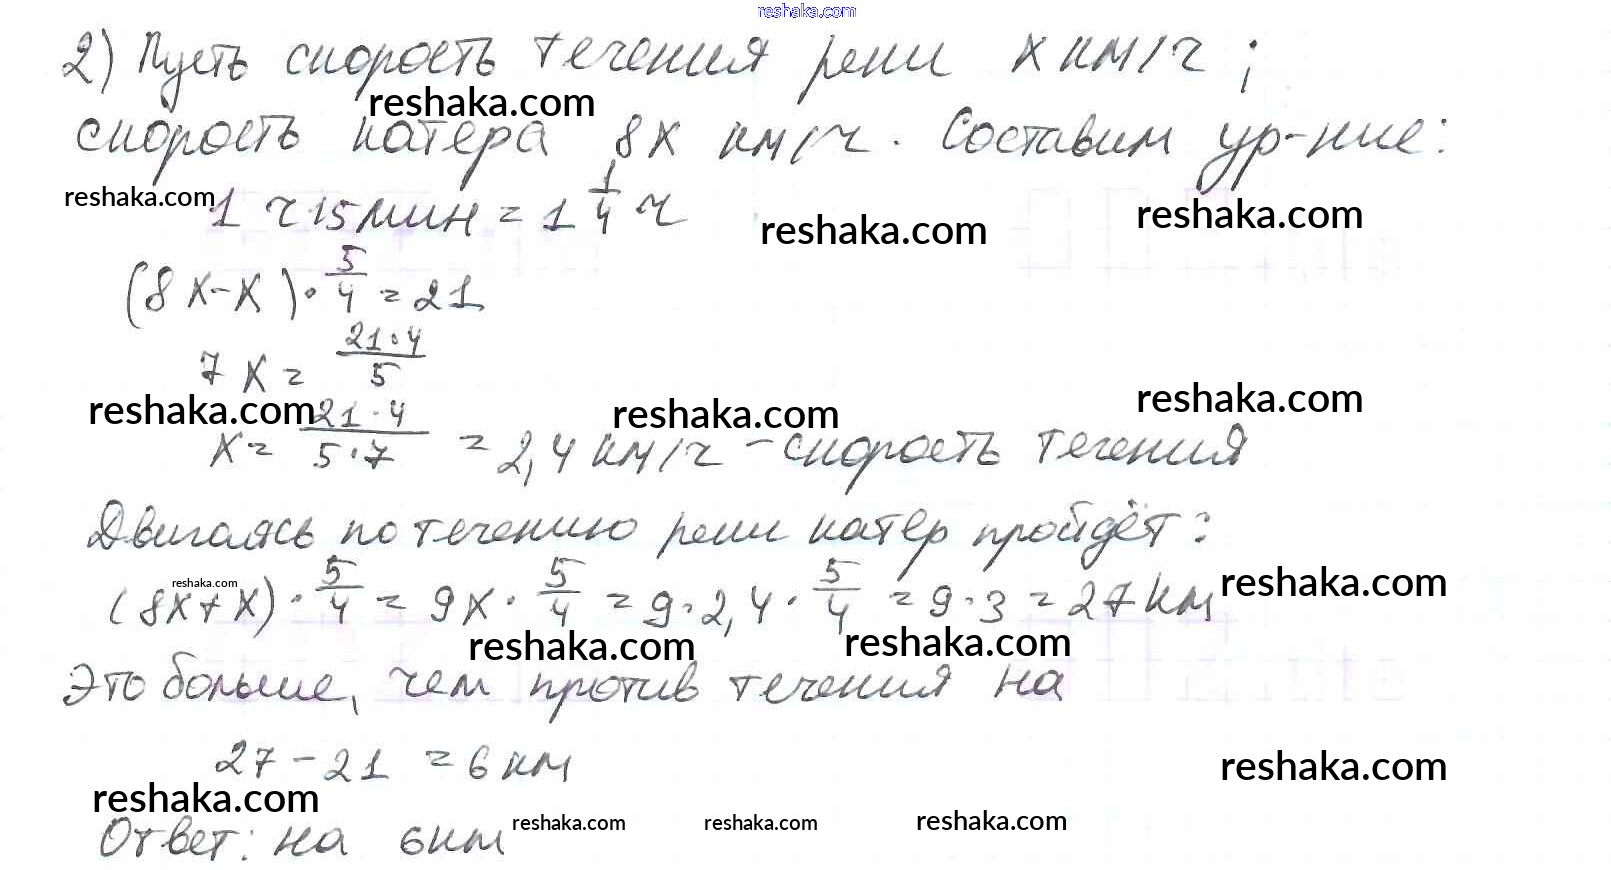 reshaka.com
2) Пусть скорость течения реки x км/ч;
reshaka.com
скорость катера 8x км/ч. Составим ур-ние:
reshaka.com
1 ч 15 мин = 1 1/4 ч
reshaka.com reshaka.com
(8x-x)·5/4 = 21
7x = 21·4/5
reshaka.com reshaka.com reshaka.com
x = 21·4/5·7 = 2,4 км/ч - скорость течения
Двигаясь по течению реки катер пройдёт:
reshaka.com reshaka.com
(8x+x)·5/4 = 9x·5/4 = 9·2,4·5/4 = 9·3 = 27 км
reshaka.com reshaka.com
Это больше, чем против течения на
27 - 21 = 6 км
reshaka.com
reshaka.com
Ответ: на 6 км
reshaka.com reshaka.com reshaka.com